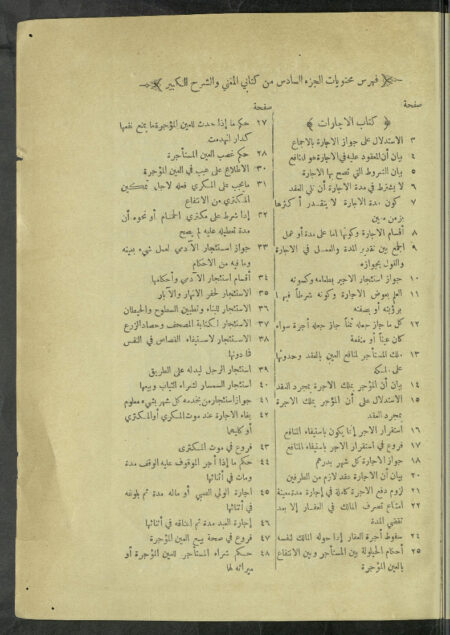 فهرس محتويات الجزء السادس من كتابي المغني والشرح الكبير
صفحة
﴿ كتاب الاجارات ﴾
٣ الاستدلال على جواز الاجارة بالاجماع
٤ بيان أن المعقود عليه في الاجارة هو المنافع
٥ بيان الشروط التي تصح بها الاجارة
٦ لا يشترط في مدة الاجارة أن تلي العقد
٧ كون مدة الاجارة لا يتقدر أكثرها
بزمن معين
٨ أقسام الاجارة وكونها اما على مدة أو عمل
٩ الجمع بين تقدير المدة والعمل في الاجارة
والقول بجوازه
١٠ جواز استئجار الاجير بطعامه وكسوته
١١ العلم بعوض الاجارة وكونه شرطاً فيها
برؤيته أو بصفته
١٢ كل ما جاز جعله ثمناً جاز جعله أجرة سواء
كان عيناً أو منفعة
١٣ ملك المستأجر لمنافع العين بالعقد وحدوثها
على ملكه
١٤ بيان أن المؤجر يملك الاجرة بمجرد العقد
١٥ الاستدلال على أن المؤجر يملك الاجرة
بمجرد العقد
١٦ استقرار الاجر إنما يكون باستيفاء المنافع
١٧ فروع في استقرار الاجر باستيفاء المنافع
١٨ جواز الاجارة كل شهر بدرهم
٢٠ بيان أن الاجارة عقد لازم من الطرفين
٢١ لزوم دفع الاجرة كاملة في إجارة مدة معينة
٢٢ امتناع تصرف المالك في العقار إلا بعد
تقضي المدة
٢٤ سقوط أجرة العقار إذا حوله المالك لنفسه
٢٥ أحكام الحيلولة بين المستأجر وبين الانتفاع
بالعين المؤجرة
صفحة
٢٧ حكم ما إذا حدث للعين المؤجرة ما يمنع نفعها
كدار انهدمت
٢٨ حكم غصب العين المستأجرة
٣٠ الاطلاع على عيب في العين المؤجرة
٣١ ما يجب على المكري فعله لاجل تمكين
المكتري من الانتفاع
٣٢ إذا شرط على مكتري الحمام أو نحوه أن
مدة تعطيله عليه لم يصح
٣٣ جواز استئجار الآدمي لعمل شيء بعينه
وما فيه من الاحكام
٣٤ أقسام استئجار الآدمي وأحكامها
٣٥ الاستئجار لحفر الانهار والآبار
٣٦ الاستئجار للبناء وتطيين السطوح والحيطان
٣٧ الاستئجار لكتابة المصحف وحصاد الزرع
٣٨ الاستئجار لاستيفاء القصاص في النفس
فما دونها
٣٩ استئجار الرجل ليدله على الطريق
٤٠ استئجار السمسار لشراء الثياب وبيعها
٤١ جواز استئجار من يخدمه كل شهر بشيء معلوم
٤٢ بقاء الاجارة عند موت المكري أو المكتري
أو كليهما
٤٣ فروع في موت المكتري
٤٤ حكم ما إذا أجر الموقوف عليه الوقف مدة
ومات في أثنائها
٤٥ اجارة الولي الصبي أو ماله مدة ثم بلوغه
في أثنائها
٤٦ إجارة العبد مدة ثم اعتاقه في أثنائها
٤٧ فروع في صحة بيع العين المؤجرة
٤٨ حكم شراء المستأجر للعين المؤجرة أو
ميراثه لها